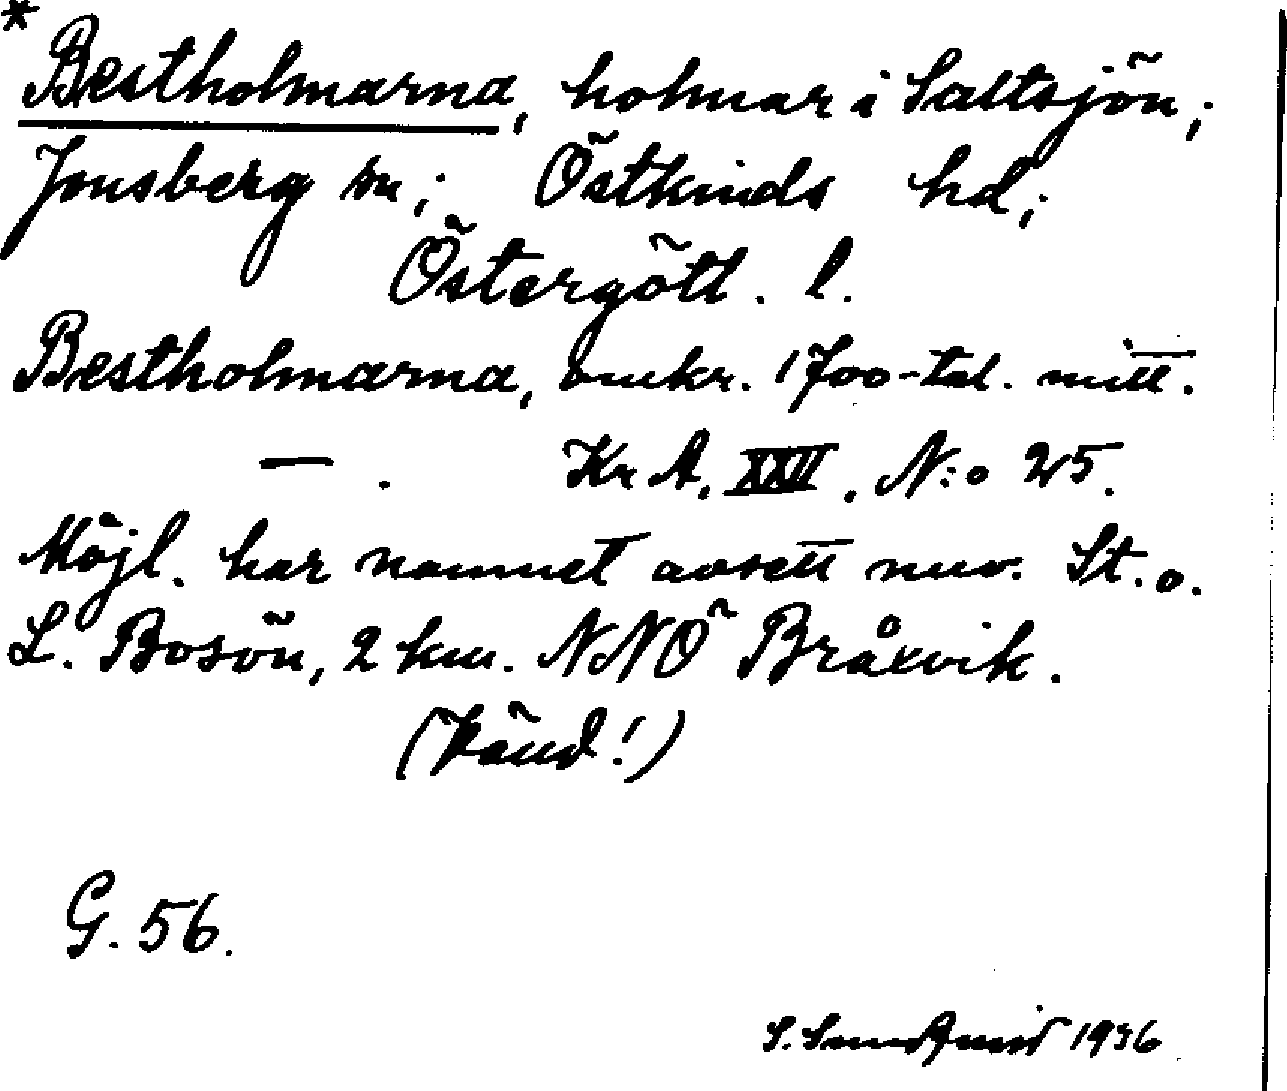 *
Bestholmarna, holmar i Saltsjön;
Jonsberg sn; Östkinds hd;
Östergötl. l.
Bestholmarna, omkr. 1700-tal. mitt.
— . Kr A. XXII. N:o 25.
Möjl. har namnet avsett nuv. St. o.
L. Bosön, 2 km. NNÖ Bråxvik.
(känd!)
G. 56.
S. Sundquist 1936